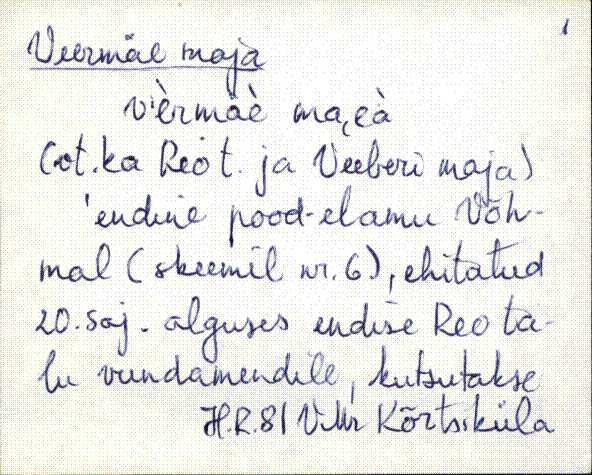 1
Veermäe maja
v'èrmäè ma,eà
(vt. ka Reo t. ja Veeberi maja)
'endine pood-elamu Võh-
mal (skeemil nr. 6), ehitatud
20. saj. alguses endise Reo ta-
lu vundamendile, kutsutakse
H.R.81 VMr Kõrtsiküla